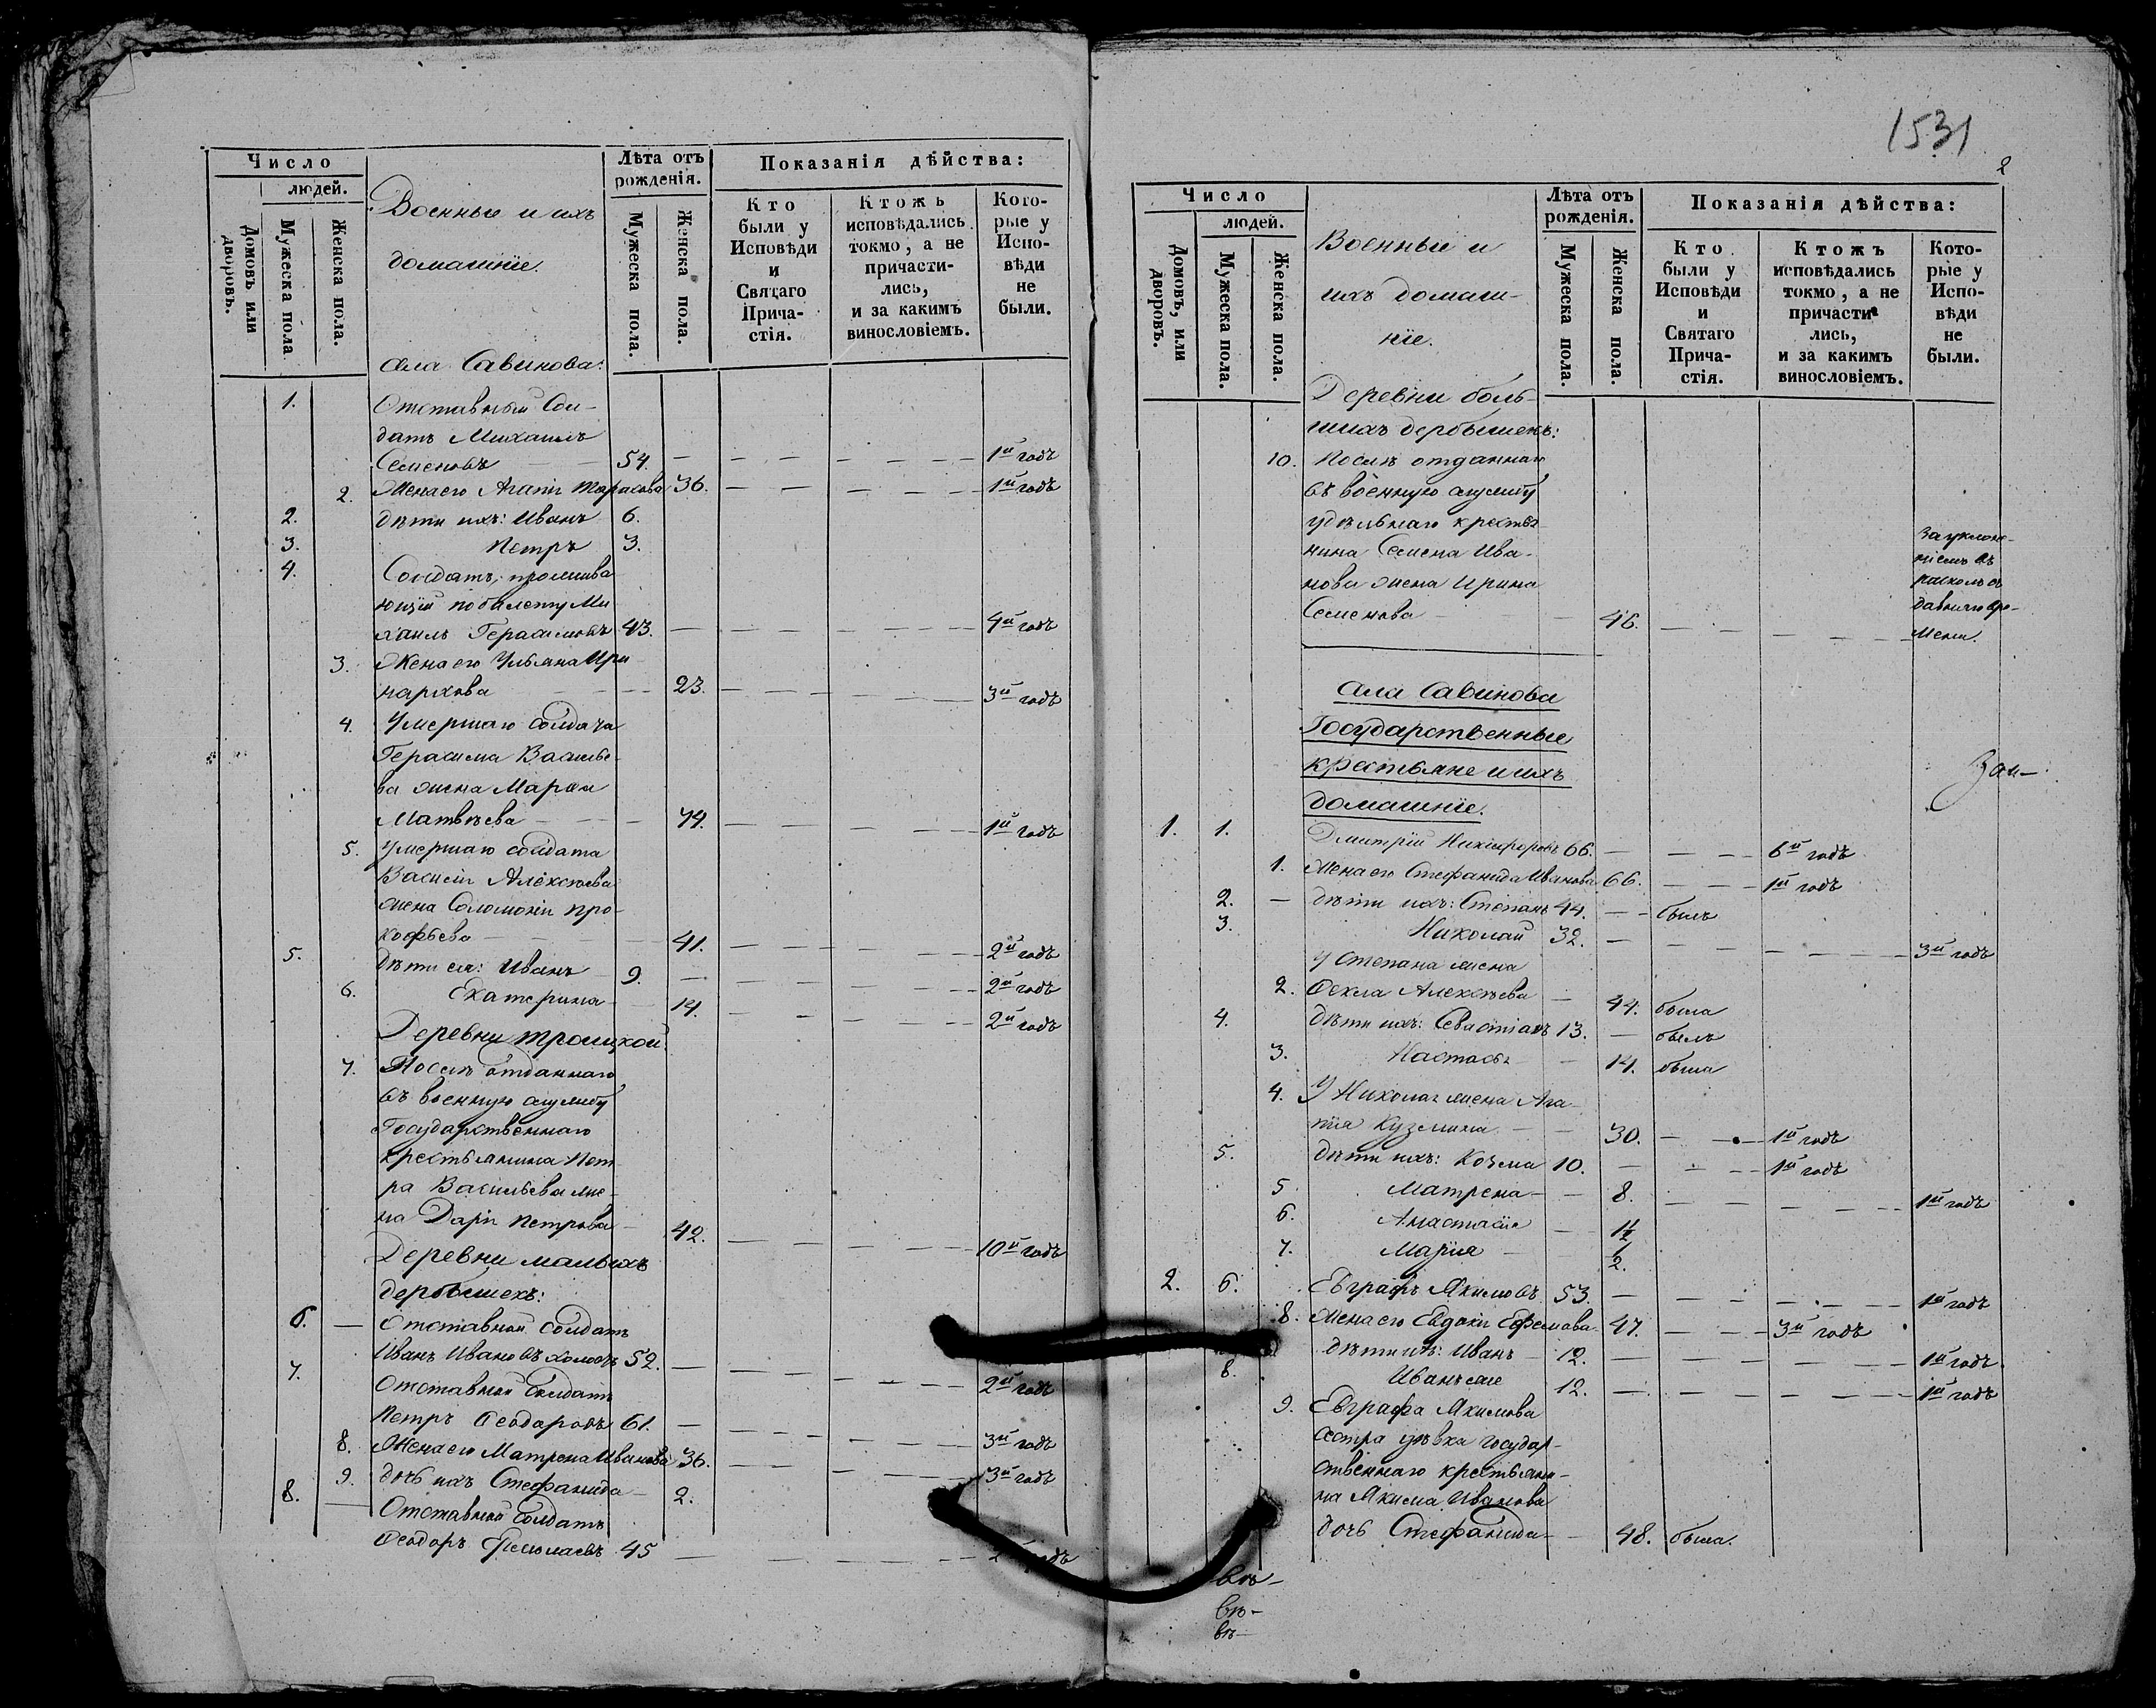 Число
людей.
Домовъ или дворовъ.
Мужеска пола
Женска пола.
Военные и ихъ
домашніе.
Лѣта отъ рожденія.
Мужеска пола.
Женска пола.
Показанія дѣйства:
Кто были у Исповѣди и Святаго Прича-стія.
Ктожъ исповѣдались токмо, а не причасти-лись, и за какимъ винословіемъ.
Кото-рые у Испо-вѣди не были.
села Савинова:
1. Отставный Сол-
датъ Михаилъ
Семеновъ 54. 1й годъ
2. Жена его Агапія Тарасова 36. 1й годъ
2. дѣти ихъ: Иванъ 6.
3. Петръ 3.
4. Солдатъ, прожива
ющій по билету Ми
хаилъ Герасимовъ 43. 4й годъ
3. Жена его Ульяна Ири
нархова 23. 3й годъ
4. Умершаго солдата
Герасима Василье-
ва жена Марѳа
Матвѣева 74. 1й годъ
5. Умершаго солдата
Василія Алексѣева
жена Соломонія Про-
кофьева 41. 2й годъ
5. дѣти ея: Иванъ 9. 2й годъ
6. Екатерина 14. 2й годъ
Деревни Троицкой:
7. Послѣ отданнаго
въ военную службу
Государственнаго
крестьянина Пет
ра Васильева же-
на Дарія Петрова 42. 10й годъ
Деревни малыхъ
дербышекъ:
6. Отставной солдатъ
Иванъ Ивановъ 52. 2й годъ
7. Отставной солдатъ
Петръ Ѳеодоровъ 61. 3й годъ
8. Жена его Матрена Иванова 36. 3й годъ
9. дочь ихъ Стефанида 2.
8. Отставной солдатъ
Ѳеодоръ 45 годъ
1531
2
Число
людей.
Домовъ, или дворовъ.
Мужеска пола.
Женска пола.
Военные и
ихъ домаш-
ніе.
Лѣта отъ рожденія.
Мужеска пола.
Женска пола.
Показанія дѣйства:
Кто были у Исповѣди и Святаго Прича-стія.
Ктожъ исповѣдались токмо, а не причасти лись, и за какимъ винословіемъ.
Кото-рые у Испо-вѣди не были.
Деревни боль-
шихъ дербышекъ:
10. Послѣ отданнаго
въ военную службу
удѣльнаго крестья
нина Семена Ива-
нова жена Ирина
Семенова 46.
За уклоне-
ніемъ въ
расколъ съ
давняго вре-
мени.
села Савинова
Государственные
крестьяне и ихъ
домашніе.
1. 1. Дмитрій Никифоровъ 66. 6й годъ
1. Жена его Стефанида Иванова 66. 1й годъ
2. дѣти ихъ: Степанъ 44. былъ
3. Николай 32. 3й годъ
У Степана жена
2. Ѳекла Алексѣева 44. была
4. дѣти ихъ: Севастіанъ 13. былъ
3. Настасья 14. была
4. У Николая жена Ага-
пія Кузмина 30. 1й годъ
5. дѣти ихъ: Козма 10. 1й годъ
5 Матрена 8. 1й годъ
6. Анастасія
7. Марія 1/2.
2. 6. Евграфъ Якимовъ 53. 1й годъ
8. Жена его Евдокія Ефимова 47. 3й годъ
дѣти ихъ: Иванъ 12. 1й годъ
8. Иванъ же 12. 1й годъ
9. Евграфа Якимова
сестра дѣвка государ-
ственнаго крестьяни-
на Якима Иванова
дочь Стефанида 48. была.